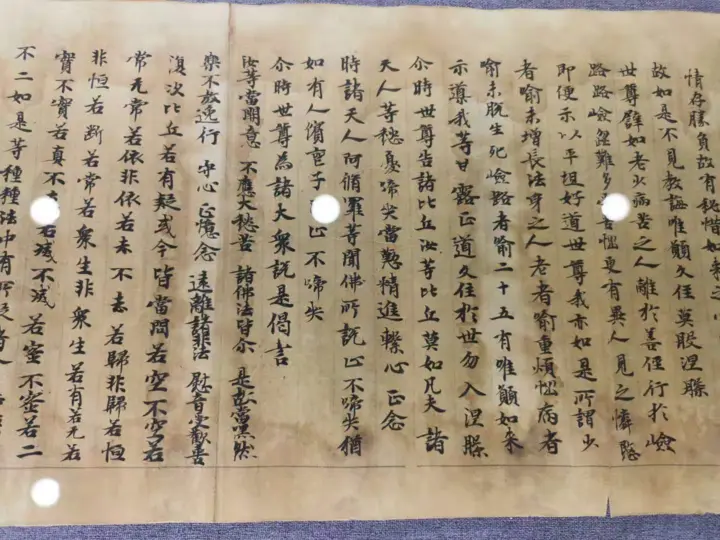 情存勝負故有祕惜如來之
故如是不見教誨唯願久住莫般涅槃
世尊譬如老少病苦之人離於善徑行於險
路路險艱難多苦惱更有異人見之憐愍
即便示以平坦好道世尊我亦如是所謂少
者喻未增長法身之人老者喻重煩惱病者
喻未脫生死險路者喻二十五有唯願如來
示導我等甘露正道久住於世勿入涅槃
尒時世尊告諸比丘汝等比丘莫如凡夫諸
天人等愁憂啼哭當懃精進繫心正念
時諸天人阿脩羅等聞佛所說止不啼哭猶
如有人殯童子止不啼哭
尒時世尊為諸大衆說是偈言
汝等當開意 不應大愁苦 諸佛法皆尒 是故當默然
樂不放逸行 守心正憶念 遠離諸非法 慰意受歡喜
復次比丘若有疑或今皆當問若空不空若
常无常若依非依若去不去若歸非歸若恒
非恒若断若常若衆生非衆生若有若无若
實不實若真不若滅不滅若密不密若二
不二如是等種種法中有所疑者